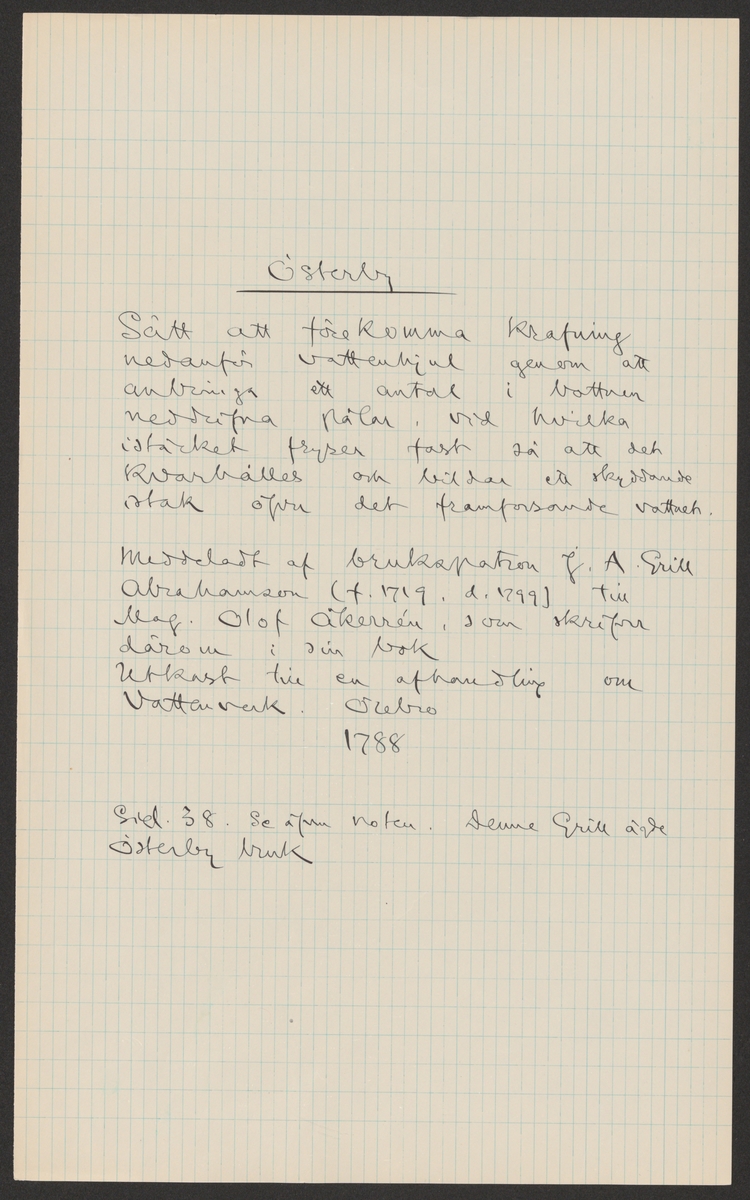 Österby
Sätt att förekomma krafning
nedanför vattenhjul genom att
anbringa ett antal i bottnen
neddrifna pålar, vid hvilka
istäcket fryser fast så att det
kvarhålles och bildar ett skyddande
istak öfver det framforsande vattnet.
Meddeladt af brukspatron J. A. Grill
Abrahamson (f. 1719, d. 1799) till
Mag. Olof Åkerrén, som skrifver
därom i sin bok
Utkast till en afhandling om
Vattenverk. Örebro
1788
Sid. 38. Se äfven noten. Denne Grill ägde
Österby bruk